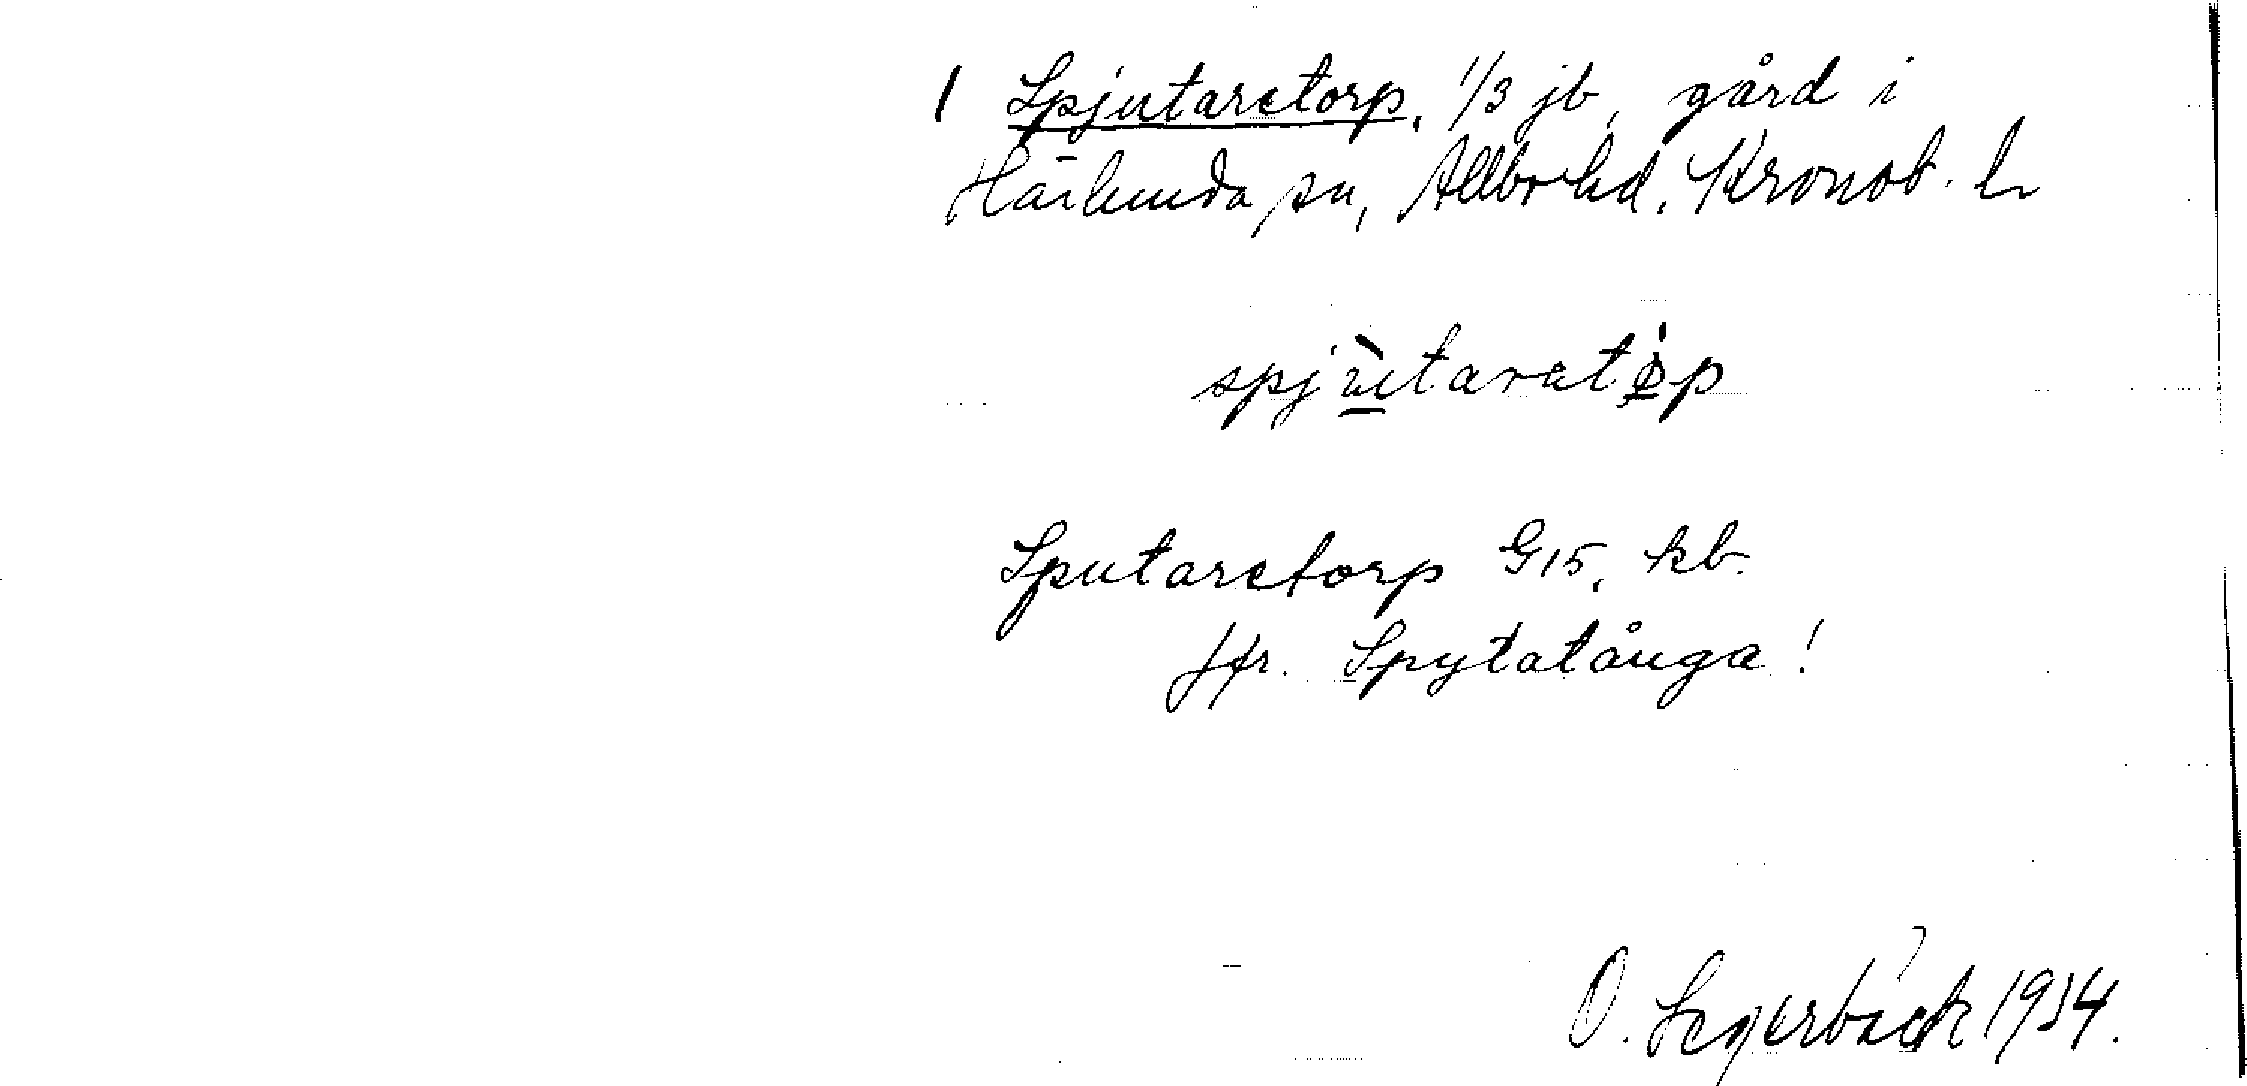 1 Spjutaretorp, 1/3 jb, gård i
Härlunda sn, Allbo hd. Kronob. l.
spjùtaratòp
Sputaretorp G15, kb.
Jfr. Spytatånga!
O. Segerbäck 1934.